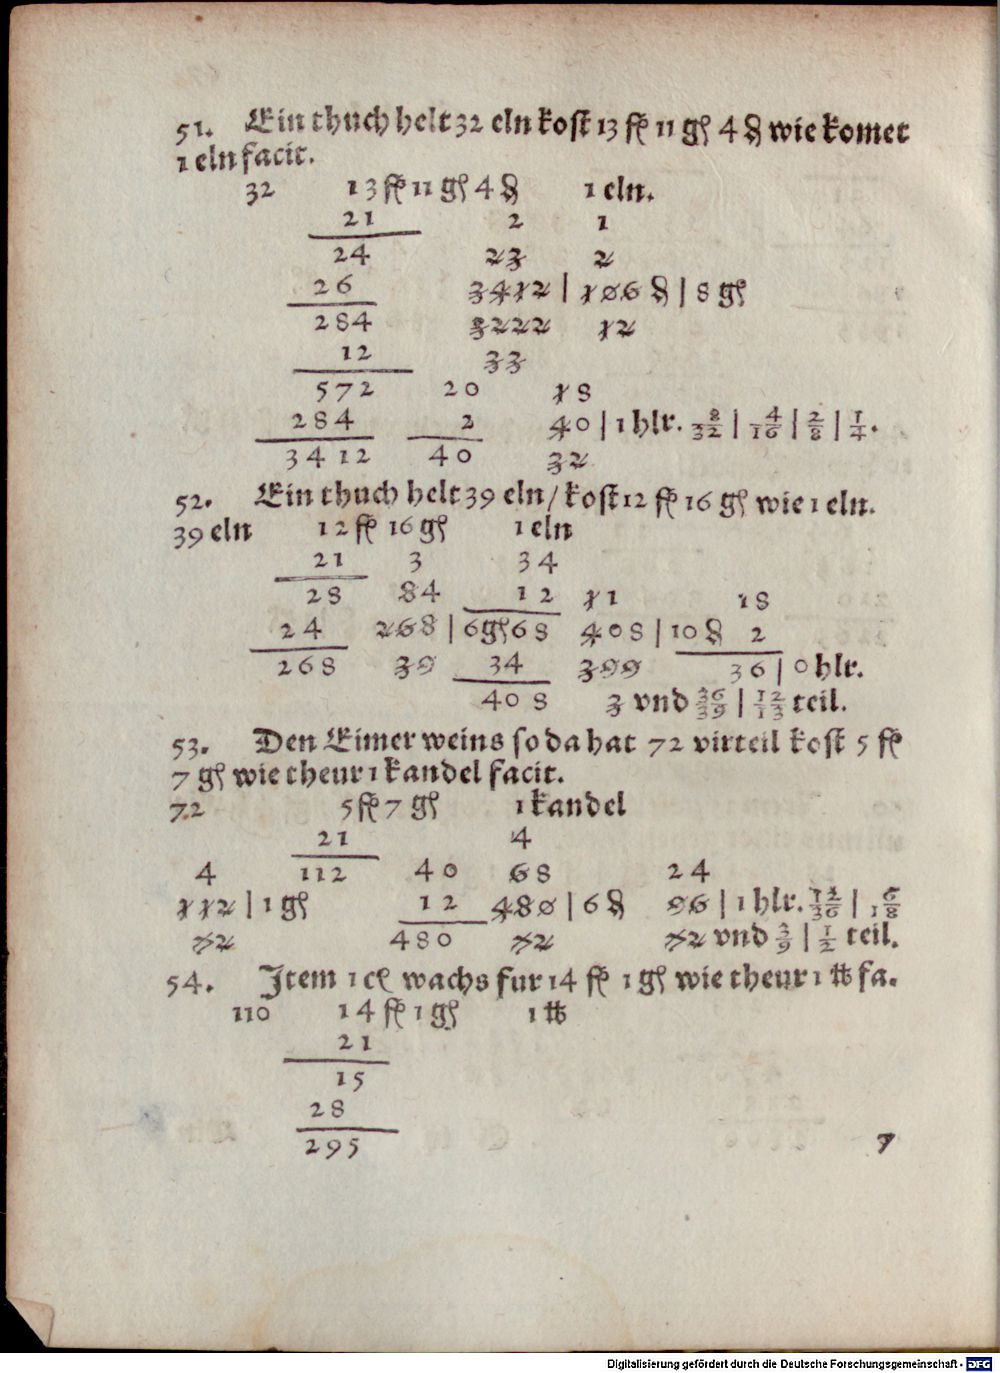 51. Ein thuch helt 32 eln kost 13 fl 11 gl 4 ₰ wie komet
1 eln facit.
32 13 fl 11 gl 4 ₰ 1 eln.
21 2 1
24 23 2
26 3412 | 106 ₰ | 8 gl
284 3222 12
12 33
572 20 18
284 2 40 | 1 hlr. 8/32 | 4/16 | 2/8 | 1/4.
3412 40 32
52. Ein thuch helt 39 eln / kost 12 fl 16 gl wie 1 eln.
39 eln 12 fl 16 gl 1 eln
21 3 34
28 84 12 11 18
24 268 | 6 gl 68 408 | 10 ₰ 2
268 39 34 399 36 | 0 hlr.
408 3 vnd 36/39 | 12/13 teil.
53. Den Eimer weins so da hat 72 virteil kost 5 fl
7 gl wie theur 1 kandel facit.
72 5 fl 7 gl 1 kandel
21 4
4 112 40 68 24
112 | 1 gl 12 480 | 6 ₰ 96 | 1 hlr. 12/36 | 1 6/8
72 480 72 72 vnd 3/9 | 1/2 teil.
54. Jtem 1 cl wachs fur 14 fl 1 gl wie theur 1 ℔ fa.
110 14 fl 1 gl 1 ℔
21
15
28
295
7
Digitalisierung gefördert durch die Deutsche Forschungsgemeinschaft - DFG